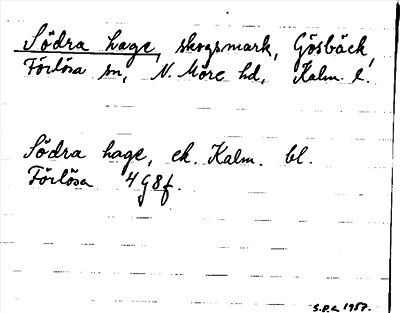 Södra hage, skogsmark, Gösbäck,
Förlösa sn, N. Möre hd, Kalm. l.
Södra hage, ek. Kalm. bl.
Förlösa 4 G8f.
S.P.L 1957.